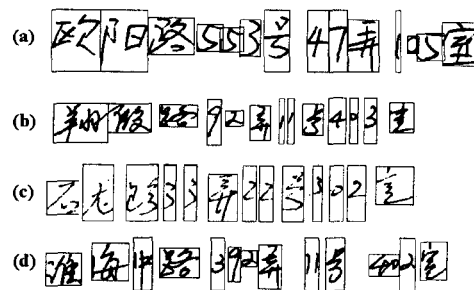 (a) 欧阳路553号47弄105室
(b) 翔殷路92弄11号403室
(c) 石龙路33弄22号302室
(d) 淮海中路392弄11号402室